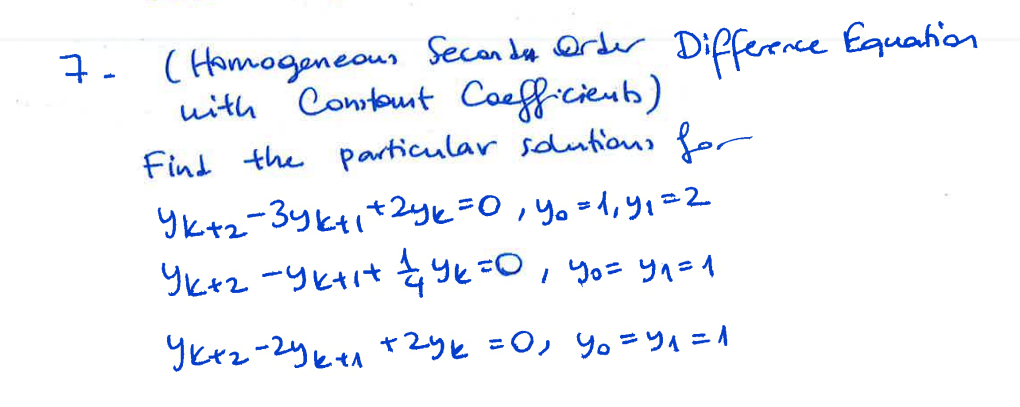 7- (Homogeneous Second Order Difference Equation
with Constant Coefficients)
Find the particular solutions for
yₖ₊₂-3yₖ₊₁+2yₖ=0, y₀=1, y₁=2
yₖ₊₂-yₖ₊₁+¼yₖ=0, y₀=y₁=1
yₖ₊₂-2yₖ₊₁+2yₖ=0, y₀=y₁=1